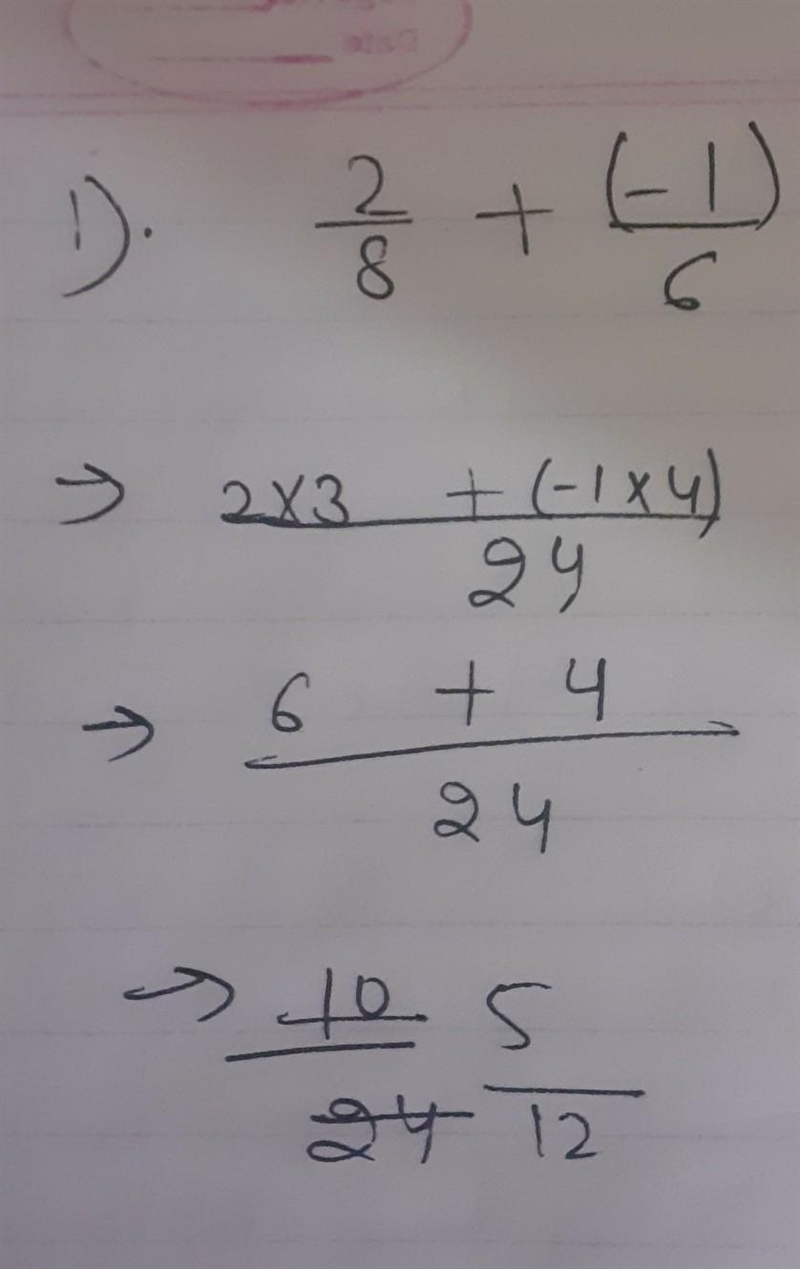 Date
1). 2/8 + (-1)/6
→ 2×3 + (-1×4)
24
→ 6 + 4
24
→ 10 5
24 12